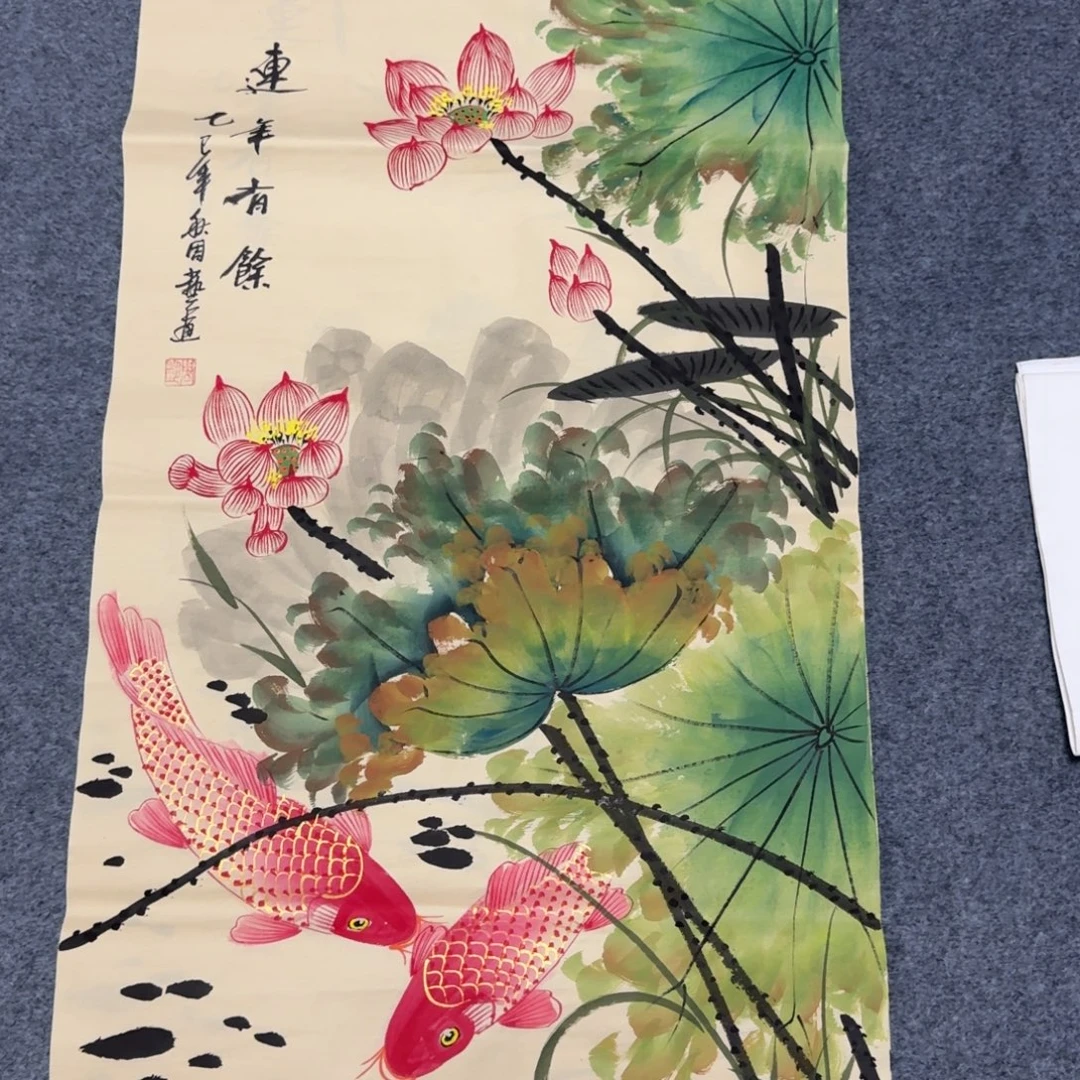 連年有餘
乙巳年秋月